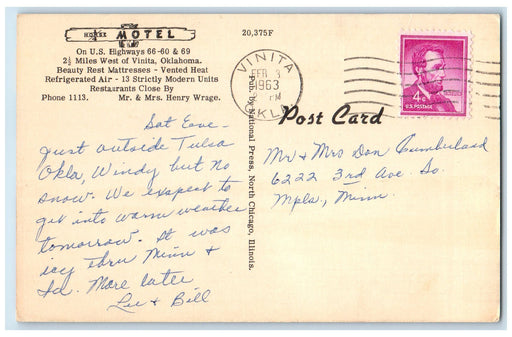 MOTEL
On U.S. Highways 66-60 & 69
2½ Miles West of Vinita, Oklahoma.
Beauty Rest Mattresses - Vented Heat
Refrigerated Air - 13 Strictly Modern Units
Restaurants Close By
Phone 1113. Mr. & Mrs. Henry Wrage.
Sat Eave-
just outside Tulsa
Okla, Windy but no
snow. We exspect to
get into warm weather
tomorrow. It was
icy thru Minn &
Ia. More later
Lu & Bill
20,375F
Pub. by National Press, North Chicago, Illinois.
VINITA
FEB 3
1963
PM
OKLA
4¢
U.S. POSTAGE
Post Card
Mr & Mrs Don Cumberland
6222 3rd Ave. So.
Mpls, Minn.